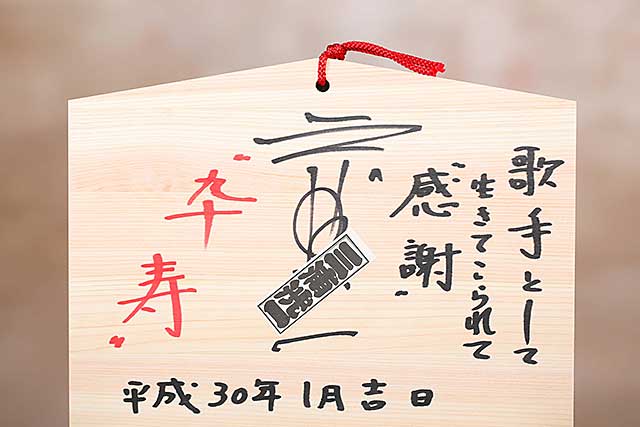 歌手として
生きてこられて
"感謝"
三浦洸一
"卆寿"
平成30年1月吉日